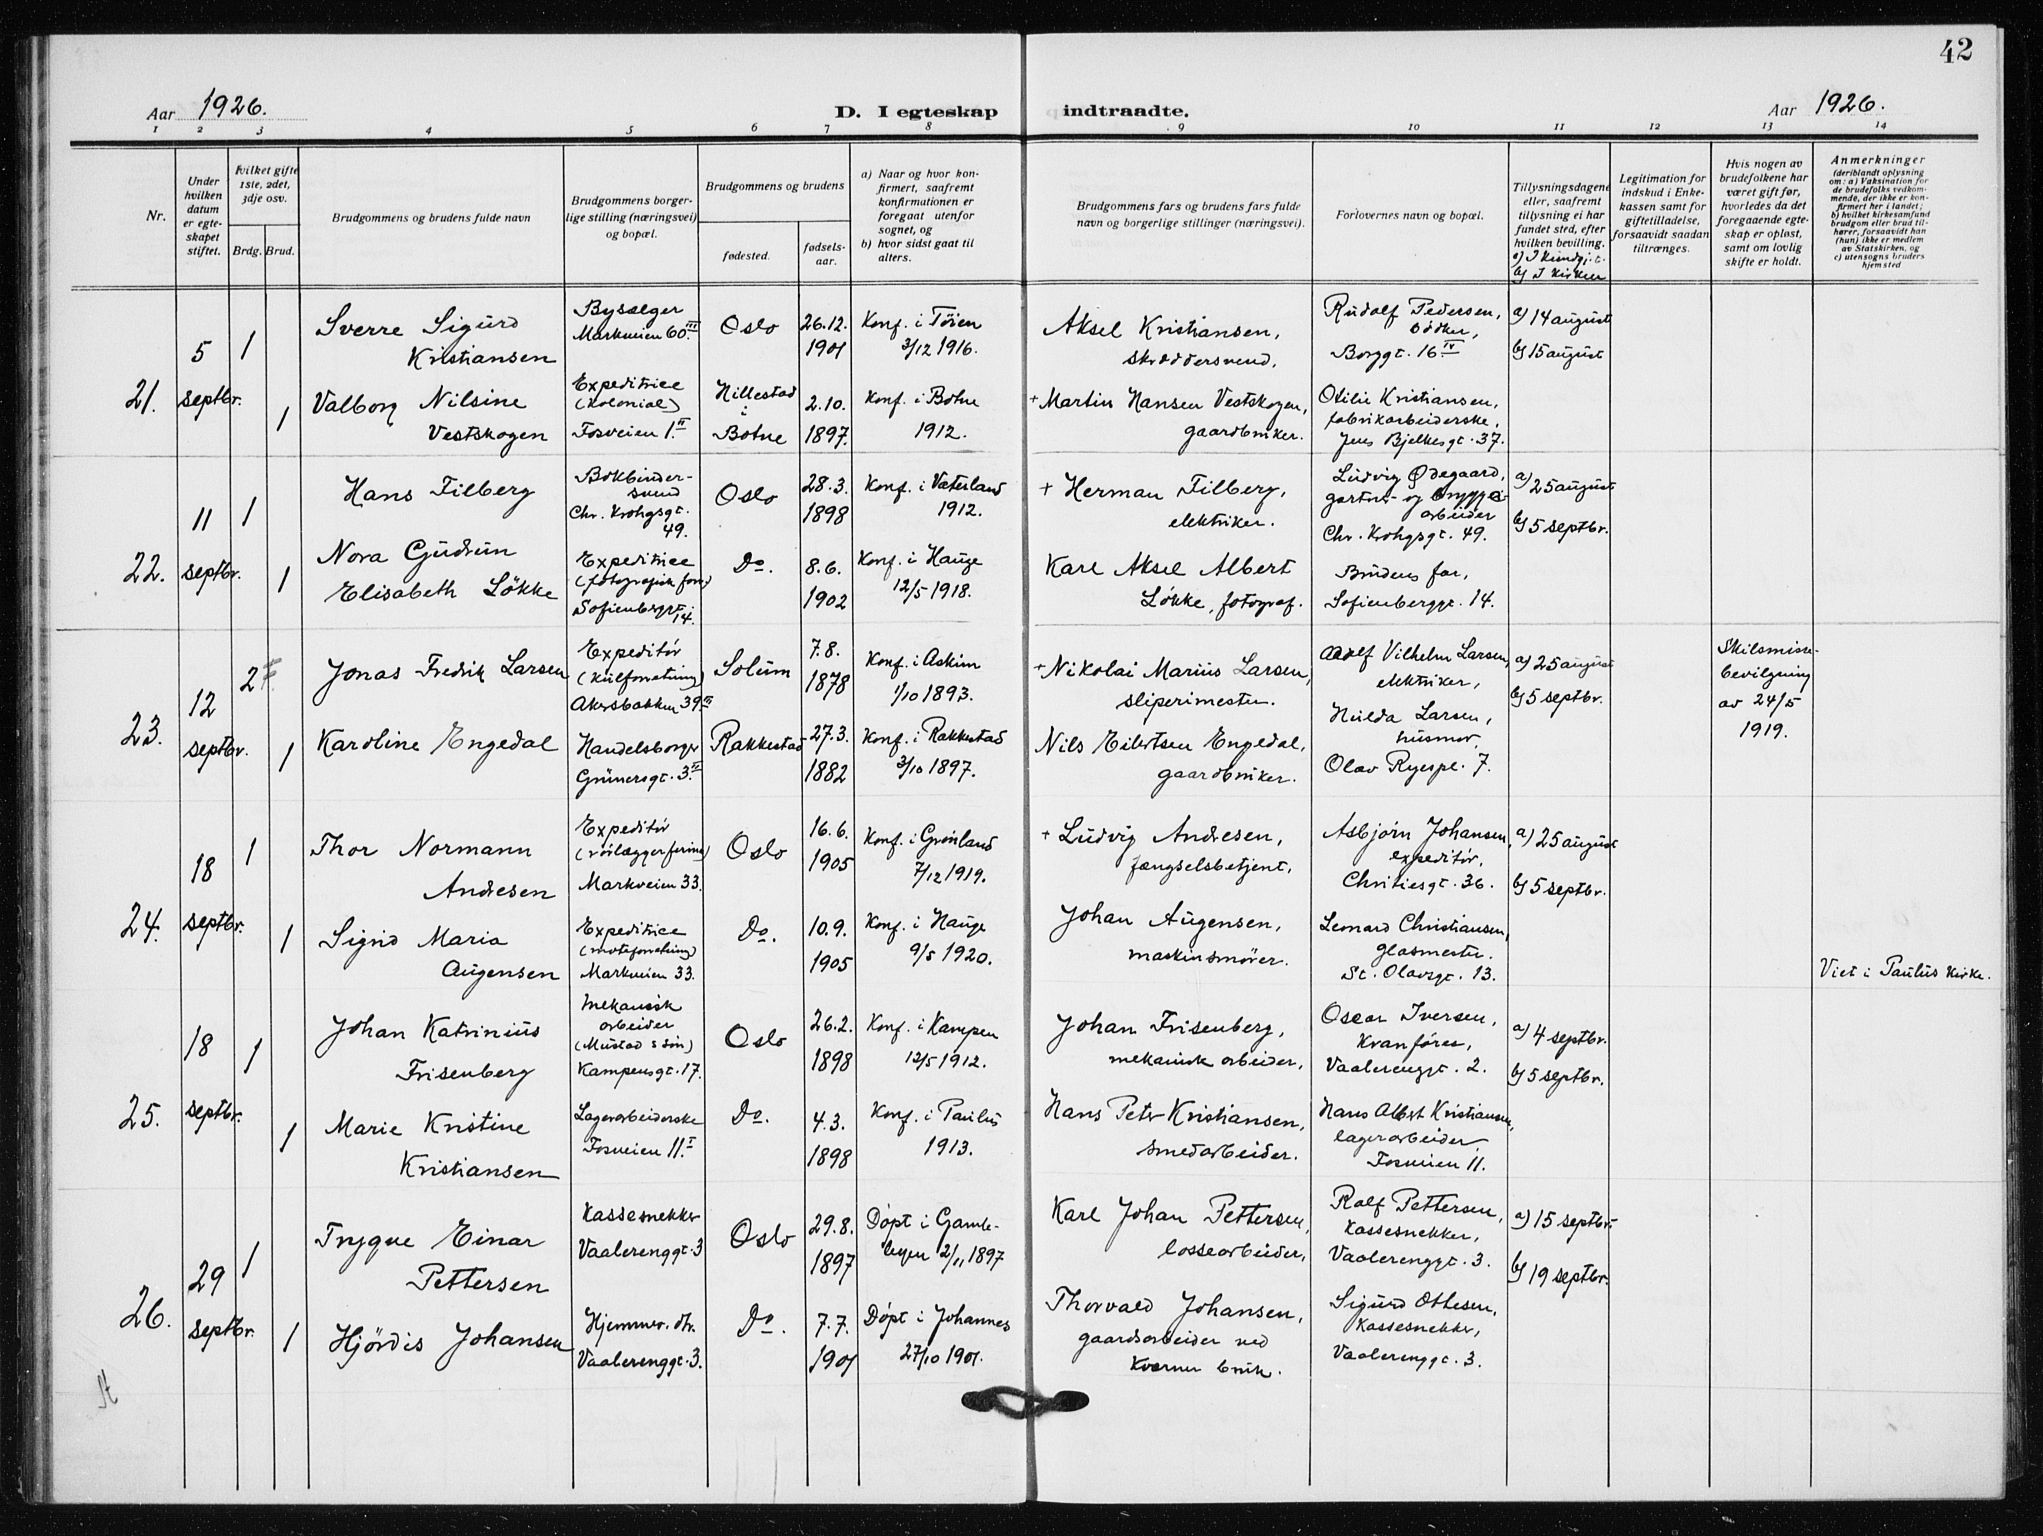 42
Aar 1926. D. I egteskap indtraadte. Aar 1926.
1 2 3 4 5 6 7 8 9 10 11 12 13 14
Nr.
Under
hvilken
datum
er egte-
skapet
stiftet.
Hvilket gifte
1ste, 2det,
3dje osv.
Brdg. Brud.
Brudgommens og brudens fulde navn
Brudgommens borger-
lige stilling (næringsvei)
og bopæl.
Brudgommens og brudens
fødested.
fødsels-
aar.
a) Naar og hvor kon-
firmert, saafremt
konfirmationen er
foregaat utenfor
sognet, og
b) hvor sidst gaat til
alters.
Brudgommens fars og brudens fars fulde
navn og borgerlige stillinger (næringsvei).
Forlovernes navn og bopæl.
Tillysningsdagene
eller, saafremt
tillysning ei har
fundet sted, efter
hvilken bevilling.
a) I kundgj.c.
b) I kirken
Legitimation for
indskud i Enke-
kassen samt for
giftetilladelse,
forsaavidt saadan
tiltrænges.
Hvis nogen av
brudefolkene har
været gift før,
hvorledes da det
foregaaende egte-
skap er opløst,
samt om lovlig
skifte er holdt.
Anmerkninger
(deriblandt oplysning
om: a) Vaksination for
de brudefolks vedkom-
mende, der ikke er kon-
firmert her i landet;
b) hvilket kirkesamfund
brudgom eller brud til-
hører, forsaavidt han
(hun) ikke er medlem
av Statskirken, og
c) utensogns bruders
hjemsted
21.
5
septbr.
1
Sverre Sigurd
Kristiansen
Bysælger
Markveien 60 III
Oslo
26.12.
1901
Konf. i Tøien
3/12 1916.
Aksel Kristiansen,
skræddersvend.
Rudolf Pedersen,
bødker,
Borggt. 16 IV
a) 14 august
b) 15 august
1
Valborg Nilsine
Vestskogen
Expeditrice
(kolonial)
Fosveien 1. II
Hillestad
i
Botne
2.10.
1897.
Konf. i Botne
1912.
+ Martin Hansen Vestskogen,
gaardbruker.
Otilie Kristiansen,
fabrikarbeiderske,
Jens Bjelkesgt. 37.
22.
11
septbr.
1
Hans Filberg
Bokbinder-
svend
Chr. Krohgsgt.
49.
Oslo
28.3.
1898
Konf. i Vaterland
1912.
+ Herman Filberg,
elektriker.
Ludvig Ødegaard,
gartner- og bryggeri-
arbeider
Chr. Krohgsgt. 49.
a) 25 august
b) 5 septbr.
1
Nora Gudrun
Elisabeth Løkke
Expeditrice
(fotografisk forr.)
Sofienberggt.
14.
Do.
8.6.
1902
Konf. i Hauge
12/5 1918.
Karl Aksel Albert
Løkke, fotograf.
Brudens far,
Sofienberggt. 14.
23.
12
septbr.
2
Jonas Fredrik Larsen
Expeditør
(kulforretning)
Akersbakken 39 II
Solum
7.8.
1878
Konf. i Askim
1/10 1893.
+ Nikolai Marius Larsen,
sliperimester.
Adolf Vilhelm Larsen,
elektriker,
a) 25 august
b) 5 septbr.
Skilsmisse-
bevilgning
av 24/5
1919.
1
Karoline Engedal
Handelsborger
Grünersgt. 3. IV
Rakkestad
27.3.
1882
Konf. i Rakkestad
3/10 1897.
Nils Eilertsen Engedal,
gaardbruker.
Hulda Larsen,
husmor,
Olav Ryespl. 7.
24.
18
septbr.
1
Thor Normann
Andresen
Expeditør
(rørlæggerfirma)
Markveien 33.
Oslo
16.6.
1905
Konf. i Grønland
7/12 1919.
+ Ludvig Andresen,
fængselsbetjent.
Asbjørn Johansen,
expeditør,
Christiesgt. 36.
a) 25 august
b) 5 septbr.
1
Sigrid Maria
Augensen
Expeditrice
(moteforretning)
Markveien 33.
Do.
10.9.
1905
Konf. i Hauge
9/5 1920.
Johan Augensen,
maskinsmører.
Leonard Christiansen,
glasmester.
St. Olavsgt. 13.
Viet i Paulus kirke.
25.
18
septbr.
1
Johan Katrinius
Frisenberg
Mekanisk
arbeider
(Mustad & Søn)
Kampensgt. 17.
Oslo
26.2.
1898
Konf. i Kampen
12/5 1912.
Johan Frisenberg,
mekanisk arbeider,
Oscar Iversen,
Kranfører,
Vaalerenggt. 2.
a) 4 septbr.
b) 5 septbr.
1
Marie Kristine
Kristiansen
Lagerarbeiderske
Fosveien 11. I
Do.
4.3.
1898
Konf. i Paulus
1913.
Hans Peter Kristiansen,
smedarbeider.
Hans Albert Kristiansen,
lagerarbeider,
Fosveien 11.
26.
29
septbr.
1
Trygve Einar
Pettersen
Kassesnekker
Vaalerenggt. 3
Oslo
29.8.
1897
Døpt i Gamle-
byen 2/11 1897
Karl Johan Pettersen,
lossearbeider,
Rolf Pettersen,
kassesnekker,
Vaalerenggt. 3.
a) 15 septbr.
b) 19 septbr.
1
Hjørdis Johansen
Hjemmev. dtr.
Vaalerenggt. 3.
Do.
7.7.
1901
Døpt i Johannes
27/10 1901.
Thorvald Johansen,
gaardsarbeider ved
Kværner bruk.
Sigurd Ottesen,
kassesnekker,
Vaalerenggt. 3.